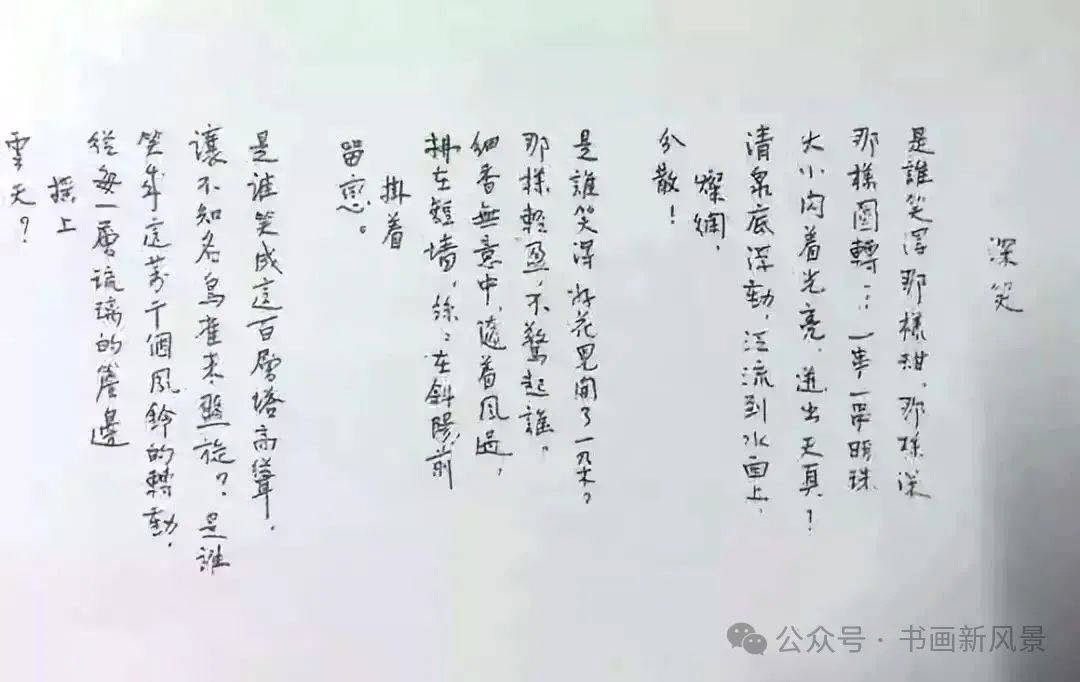 深笑
是誰笑得那樣甜，那樣深
那樣圓轉：一串一串明珠
大小閃着光亮，迸出天真！
清泉底浮動，泛流到水面上，
燦爛，
分散！
是誰笑得好花兒開了一朵？
那樣輕盈，不驚起誰。
細香無意中，隨着風過，
拂在短墻，絲：在斜陽前
掛着
留戀。
是谁笑成這百層塔高聳，
讓不知名鳥雀来盤旋？是誰
笑成這萬千個風鈴的轉動，
從每一層琉璃的簷邊
搖上
雲天？
公众号·书画新风景